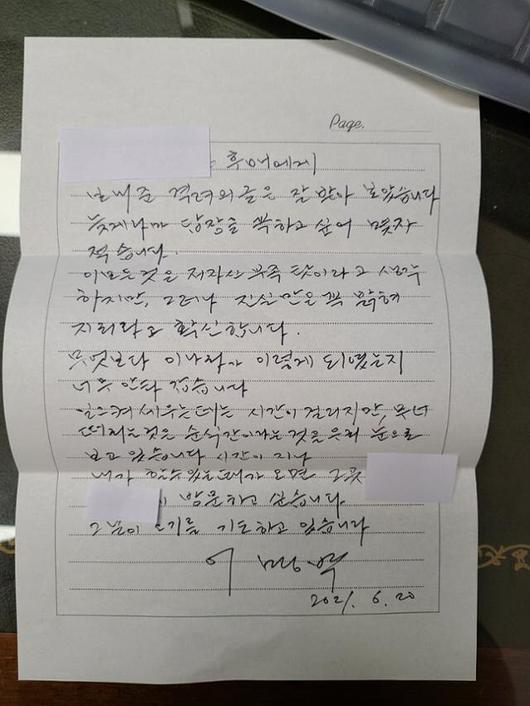 Page.
후배에게
보내준 격려의 글은 잘 받아 보았습니다
늦게나마 답장을 꼭하고 싶어 몇자
적습니다.
이모든것은 저자신 부족 탓이라고 생각
하지만, 그러나 진실만은 꼭 밝혀
지리라고 확신합니다.
무엇보다 이나라가 이렇게 되였는지
너무 안타 갑습니다
일으켜 세우는데는 시간이 걸리지만, 무너
떠리는것은 순식간이라는것을 우리 눈으로
보고 있습니다 시간이 지나
내가 할수있는때가 오면 그곳
방문하고 싶습니다.
그날이 오기를 기도하고 있습니다
이 명 박
2021. 6. 20